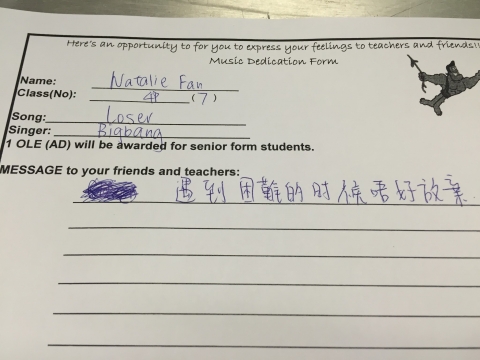 Here's an opportunity to for you to express your feelings to teachers and friends!!
Music Dedication Form
Name: Natalie Fan
Class(No): 4P (7)
Song: Loser
Singer: Bigbang
1 OLE (AD) will be awarded for senior form students.
MESSAGE to your friends and teachers:
遇到困難的时候唔好放棄